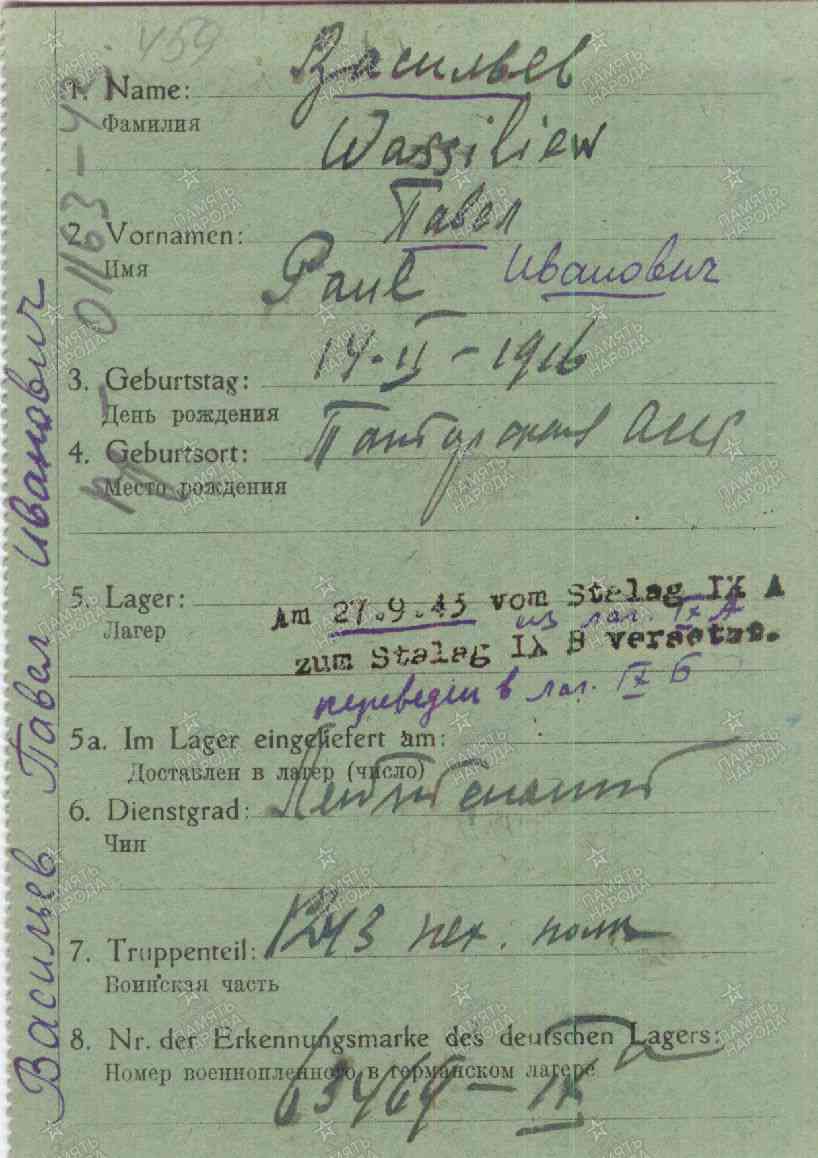 459
1. Name: Васильев
Фамилия
Wassiliew
2. Vornamen: Павел
Имя
Paul Иванович
3. Geburtstag: 14-II-1916
День рождения
4. Geburtsort:
Место рождения
5. Lager:
Лагер
Am 27.9.43 vom Stalag IX A
из лаг. IX А
zum Stalag IX B versetzt.
переведен в лаг. IX Б
5a. Im Lager eingeliefert am:
Доставлен в лагер (число)
6. Dienstgrad: Лейтенант
Чин
7. Truppenteil: 1243 пех. полк
Воинская часть
8. Nr. der Erkennungsmarke des deutschen Lagers:
Номер военнопленного в германском лагере
63464 - IX
Васильев Павел Иванович
ПАМЯТЬ НАРОДА